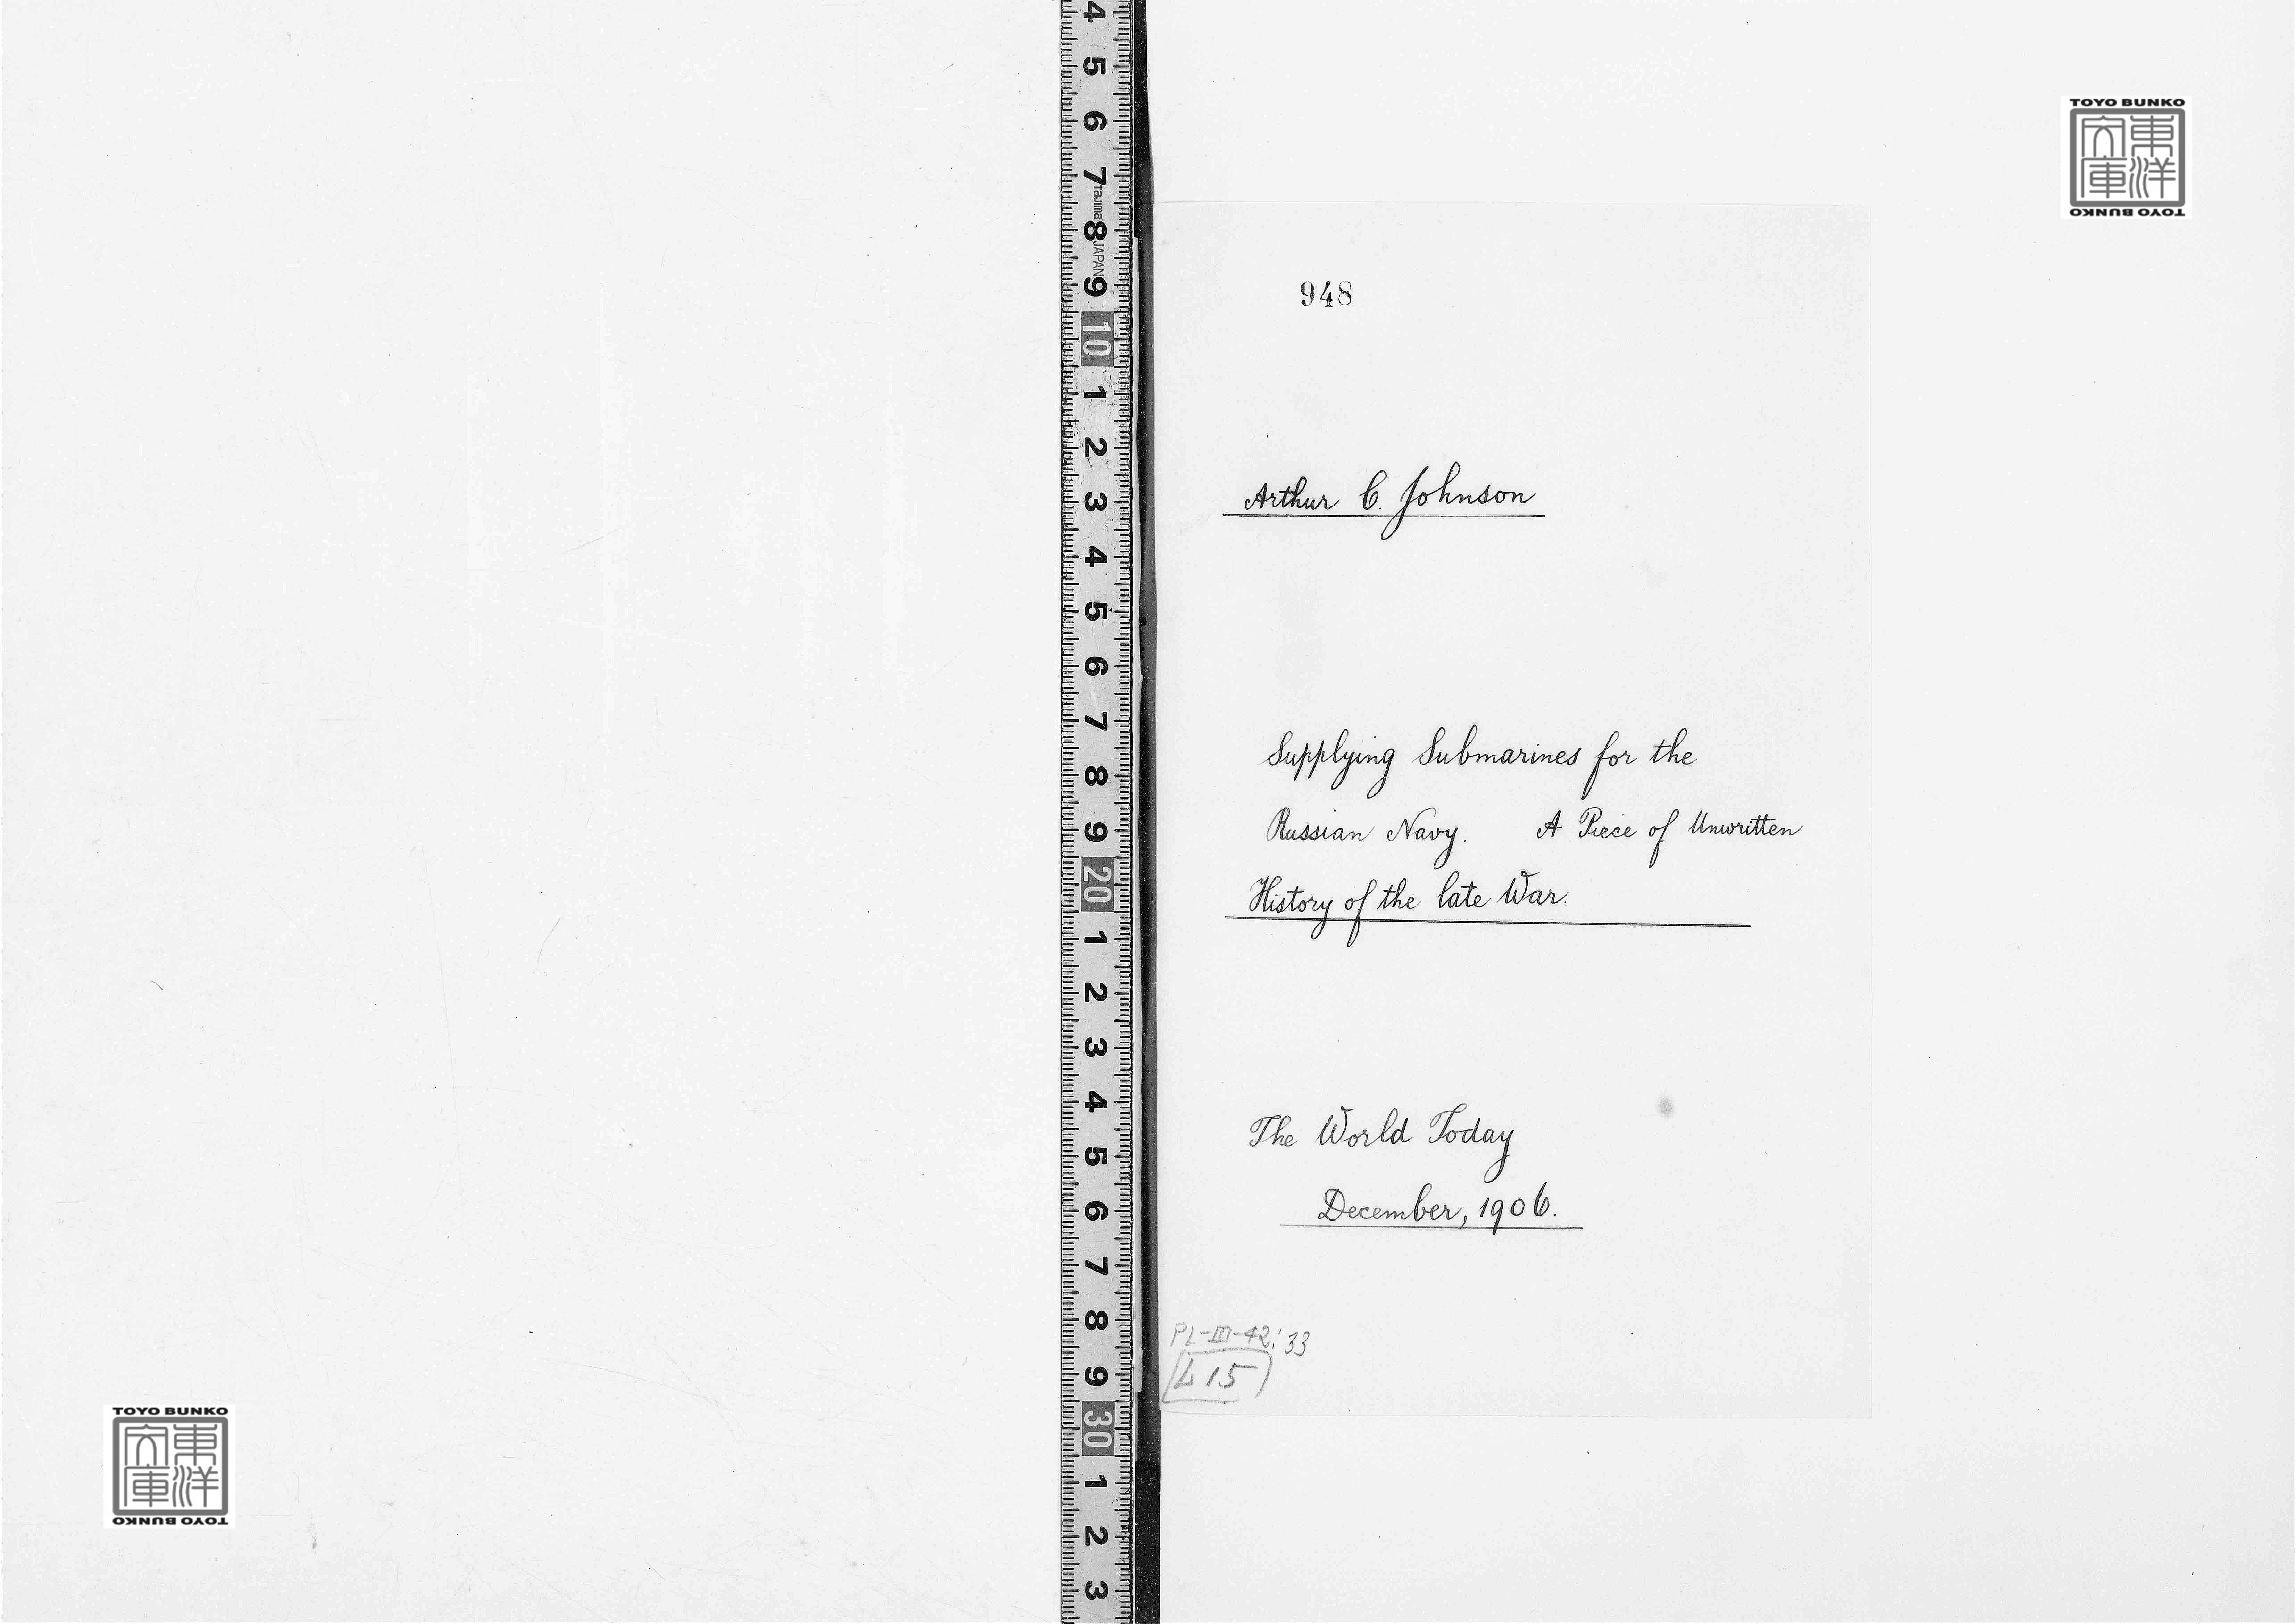 TOYO BUNKO
東洋
文庫
TOYO BUNKO
948
Arthur C. Johnson
Supplying Submarines for the
Russian Navy. A Piece of Unwritten
History of the late War.
The World Today
December, 1906.
PL-III-42:33
415
4
5
6
7
Tajima
8
JAPAN
9
10
1
2
3
4
5
6
7
8
9
20
1
2
3
4
5
6
7
8
9
30
1
2
3
TOYO BUNKO
東洋
文庫
TOYO BUNKO